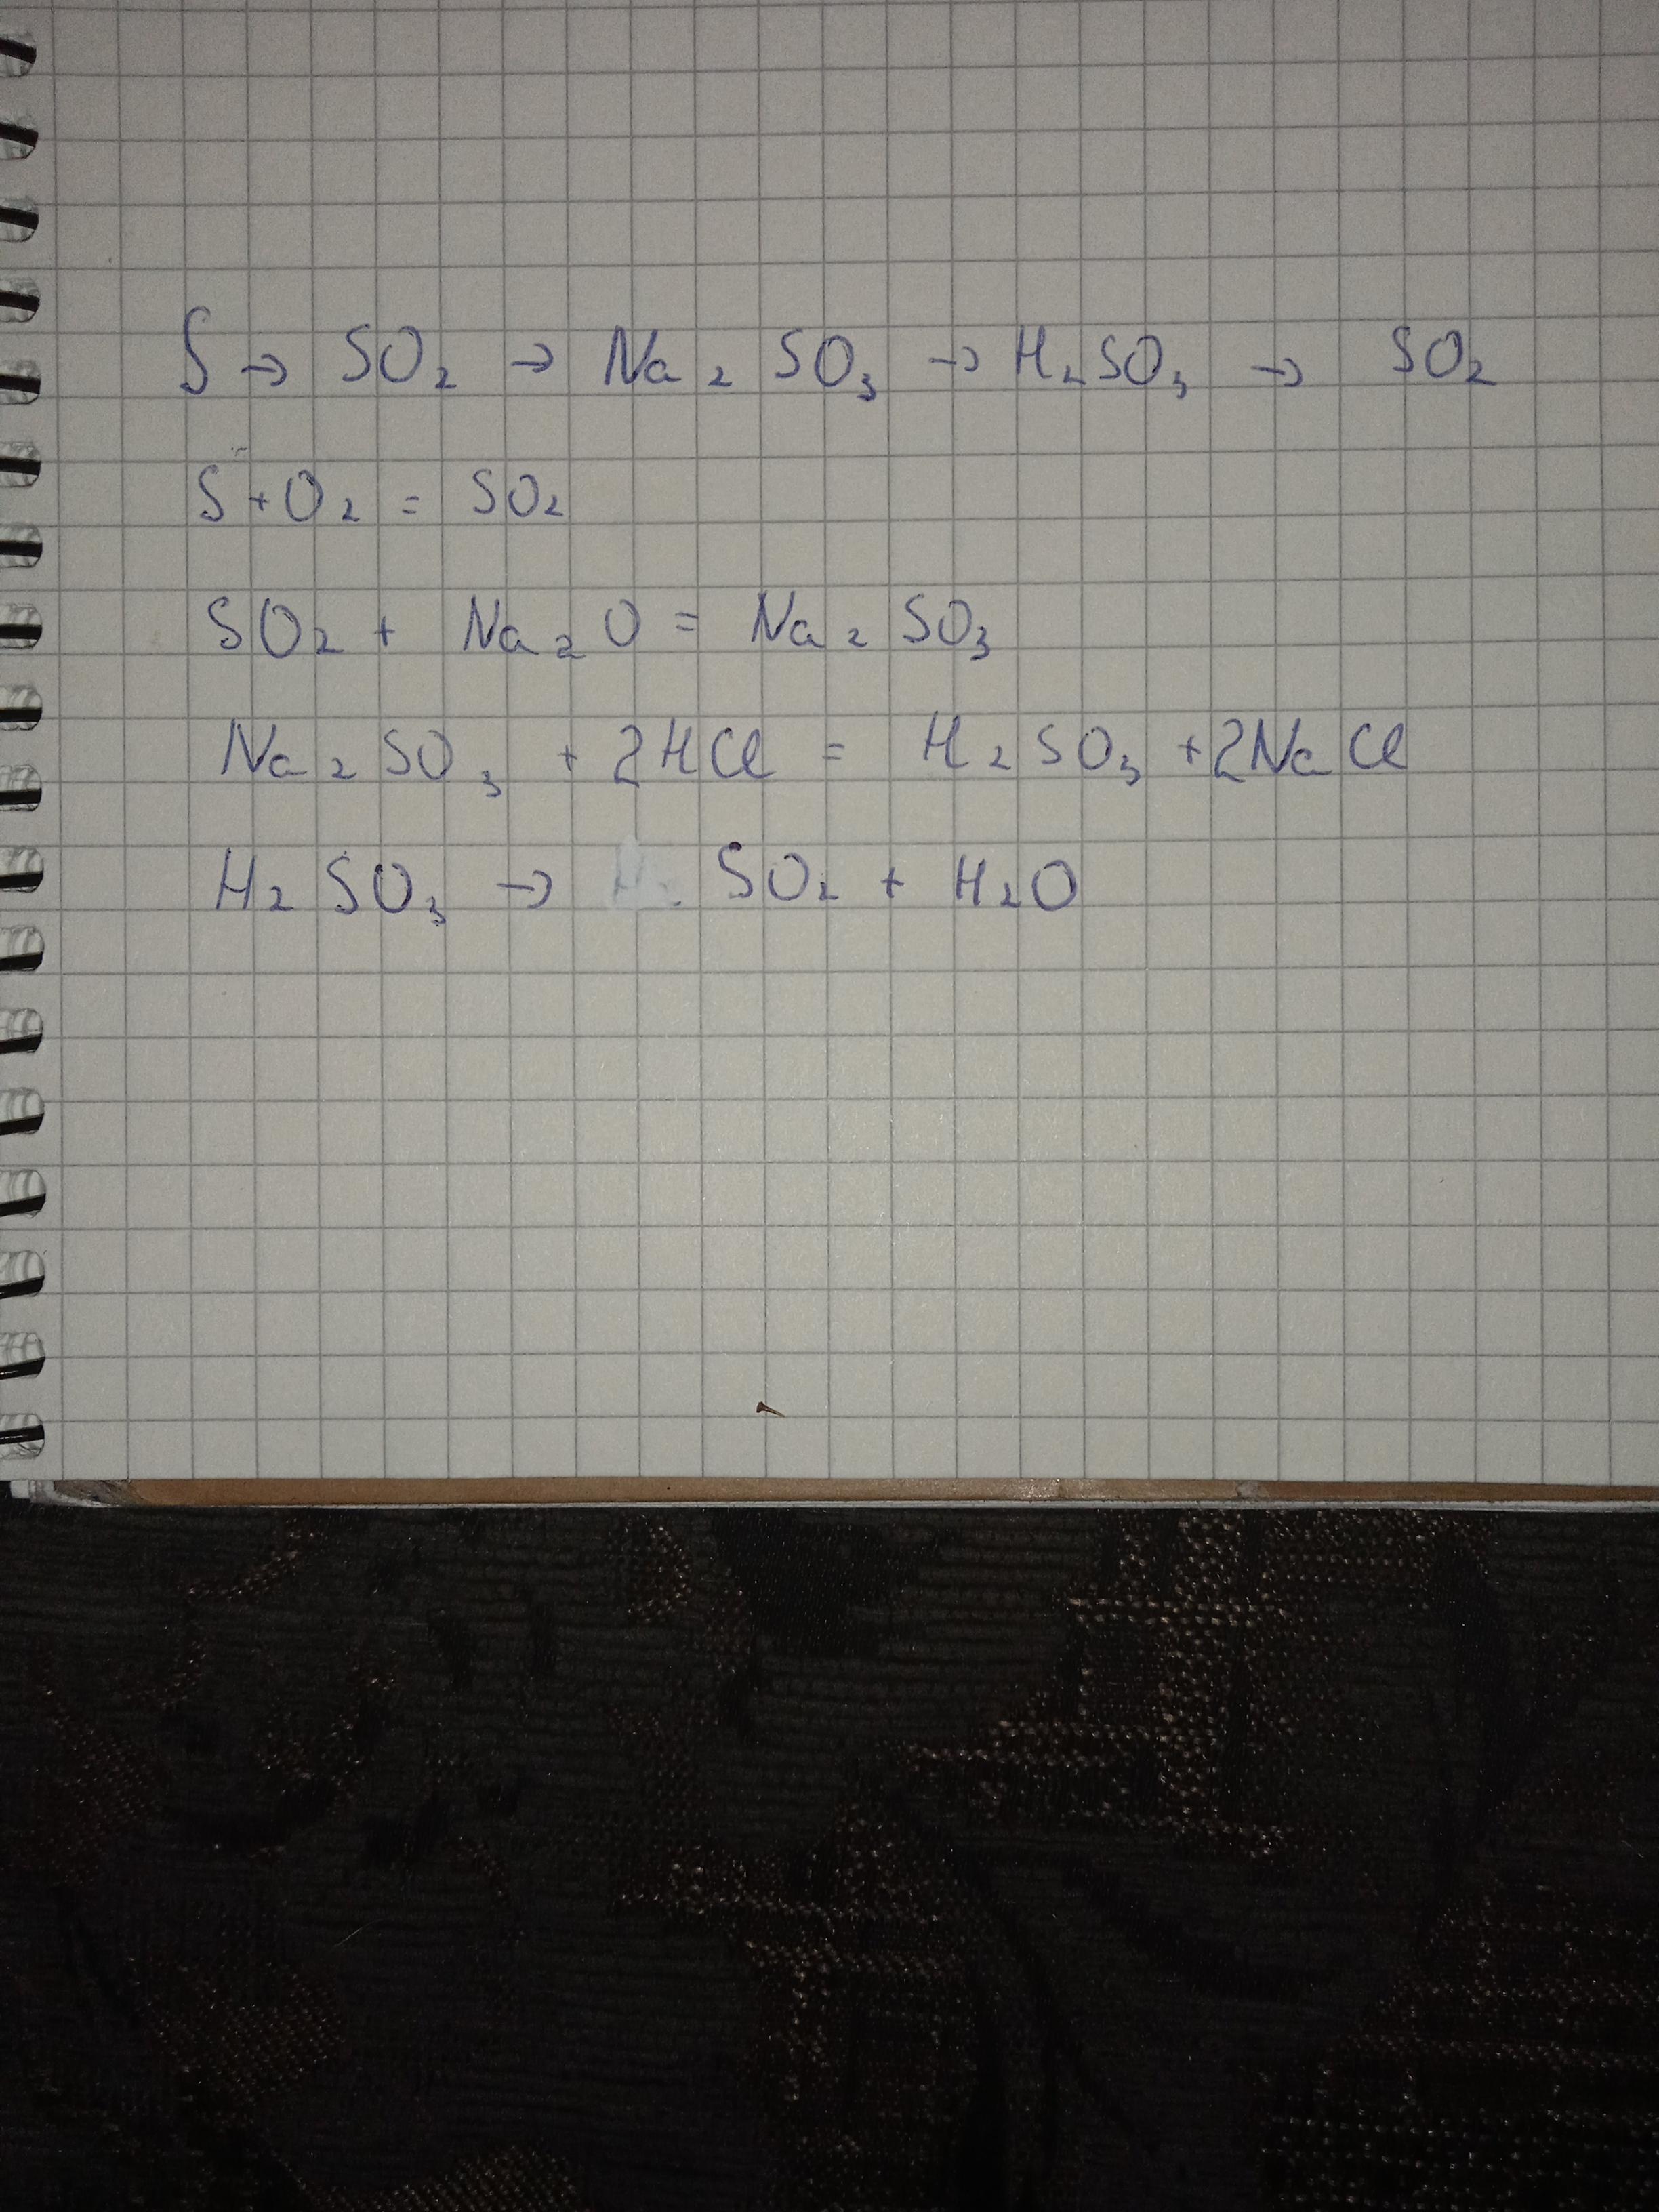 S → SO₂ → Na₂SO₃ → H₂SO₃ → SO₂
S + O₂ = SO₂
SO₂ + Na₂O = Na₂SO₃
Na₂SO₃ + 2HCl = H₂SO₃ + 2NaCl
H₂SO₃ → SO₂ + H₂O